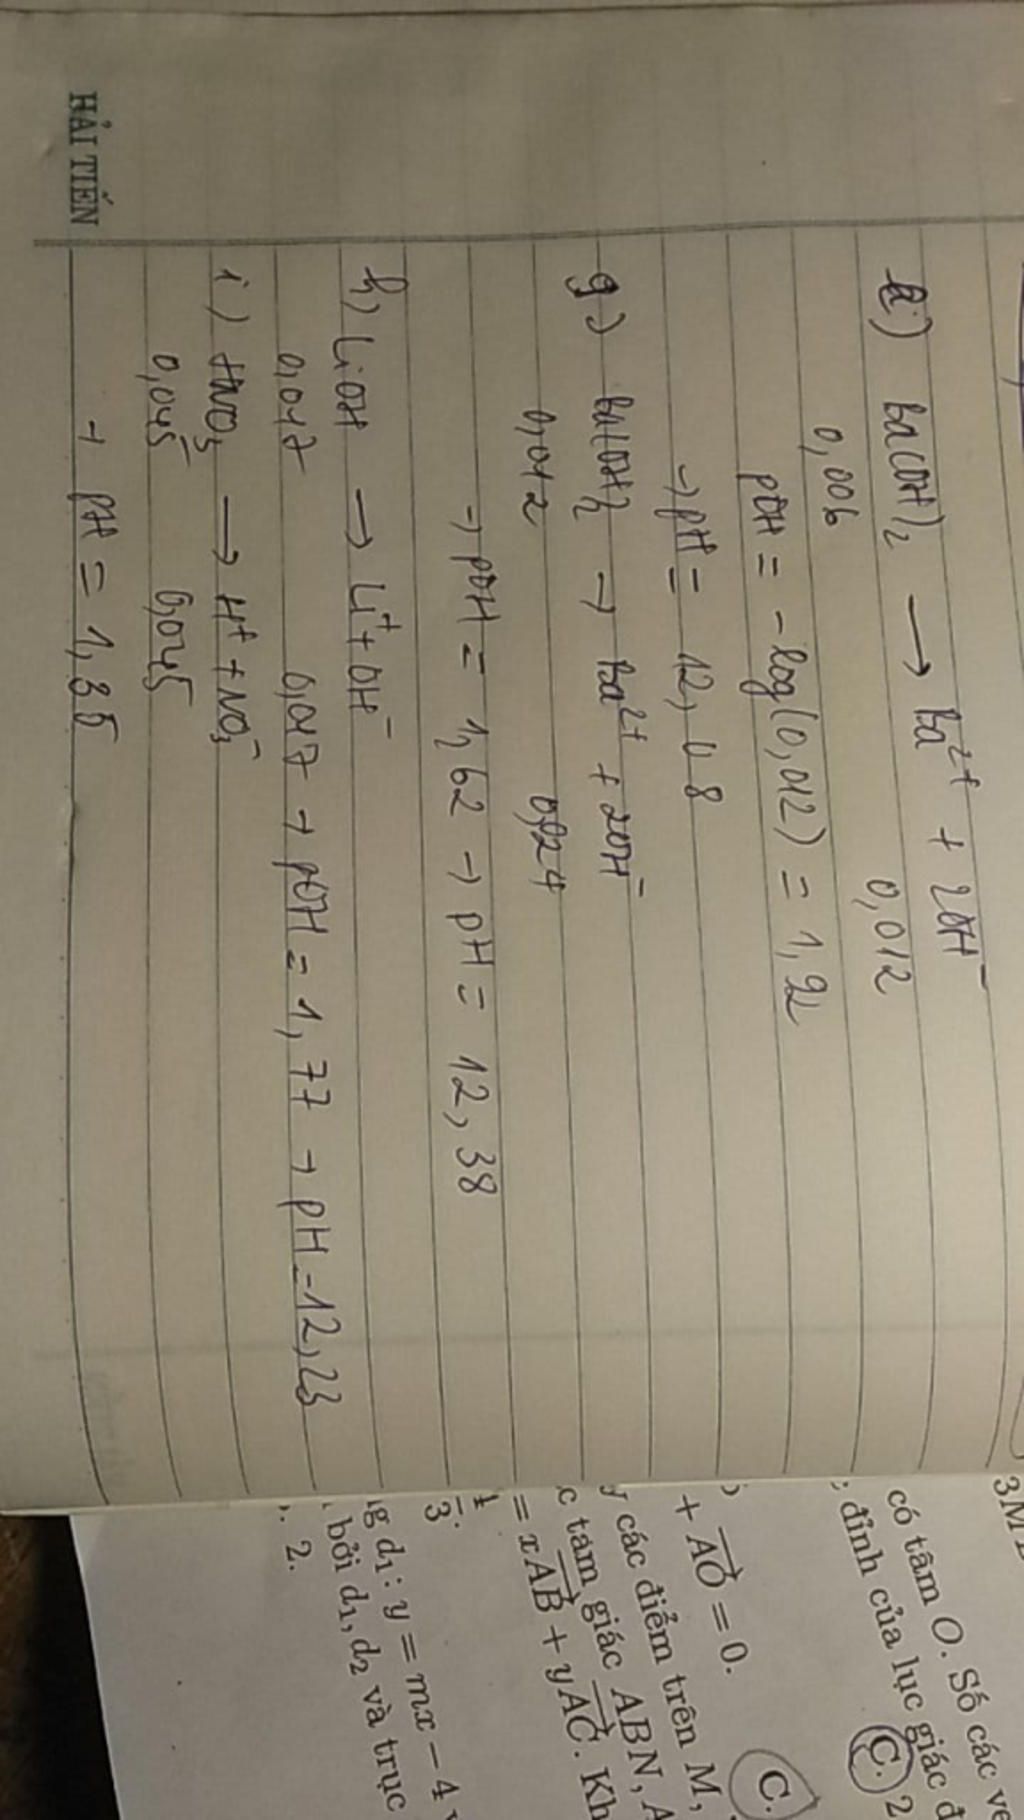 Ba(OH)₂ → Ba²⁺ + 2OH⁻
0,006 0,012
pOH = -log(0,012) = 1,92
→ pH = 12,08
g) Ba(OH)₂ → Ba²⁺ + 2OH⁻
0,012 0,024
→ pOH = 1,62 → pH = 12,38
h) LiOH → Li⁺ + OH⁻
0,017 0,017 → pOH = 1,77 → pH = 12,23
i) HNO₃ → H⁺ + NO₃⁻
0,045 0,045
→ pH = 1,35
HẢI TIẾN
có tâm O. Số các
đỉnh của lục giác
C. 2
+ AO = 0.
C.
các điểm trên M,
tam giác ABN,
= xAB + yAC.
3
d₁: y = mx - 4
bởi d₁, d₂ và trục
2.